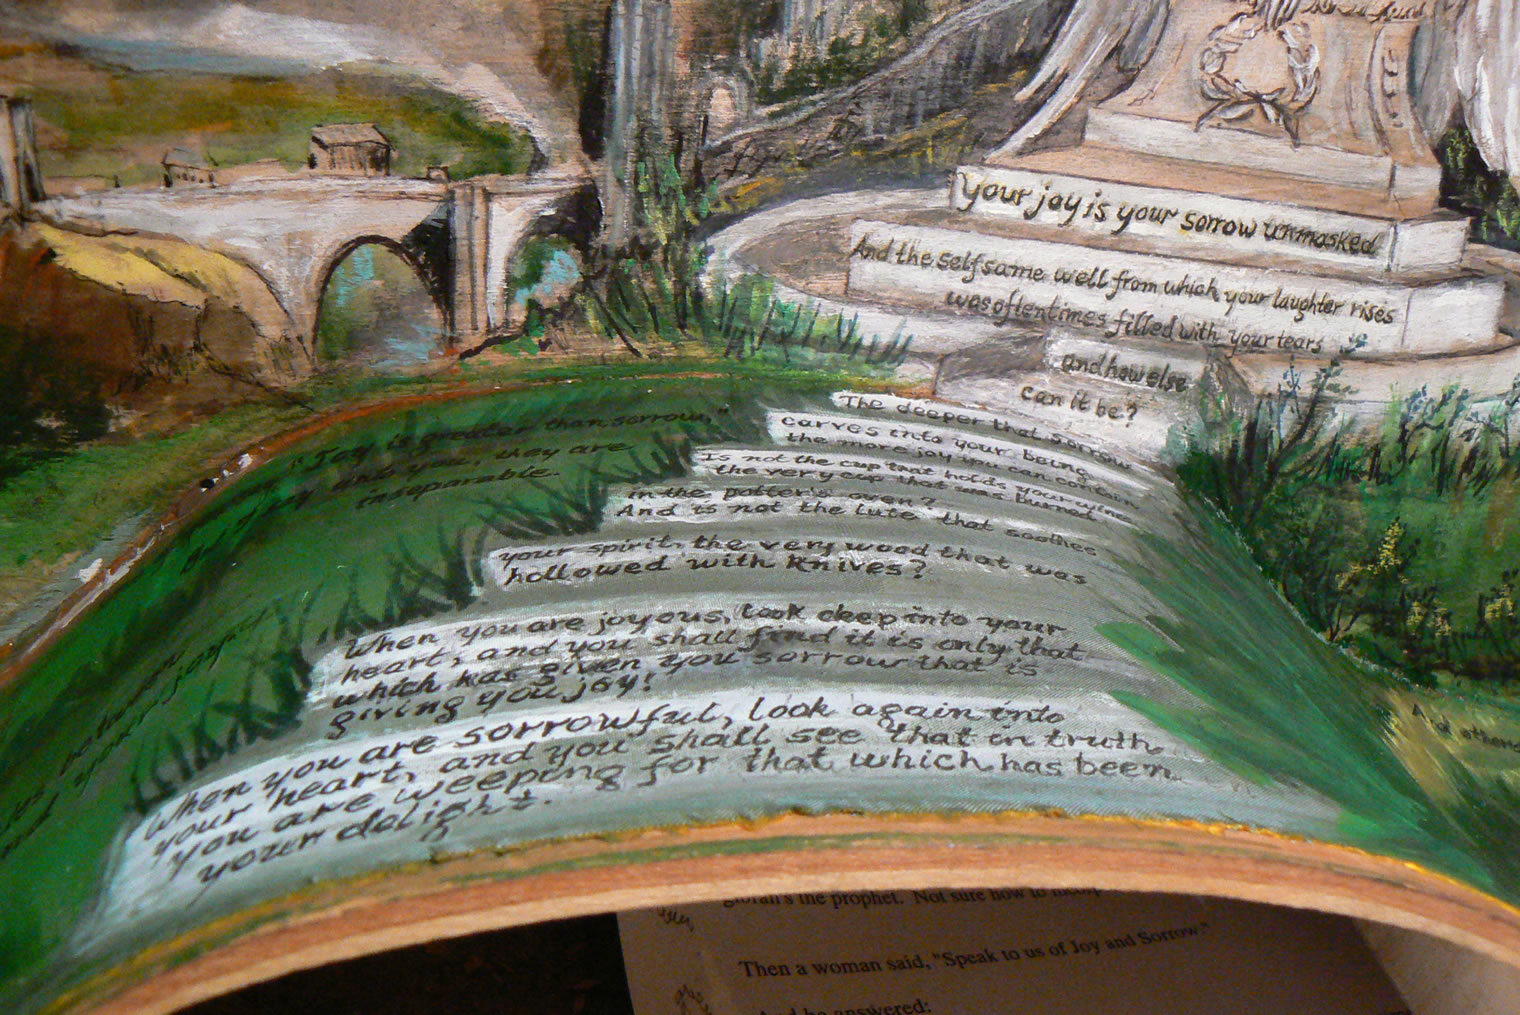 Your joy is your sorrow unmasked
And the selfsame well from which your laughter rises
was oftentimes filled with your tears
and how else
can it be?
The deeper that sorrow
carves into your being
the more joy you can contain
Is not the cup that holds your wine
the very cup that was burned
in the potter's oven?
And is not the lute that soothes
your spirit, the very wood that was
hollowed with knives?
When you are joyous, look deep into your
heart, and you shall find it is only that
which has given you sorrow that is
giving you joy!
When you are sorrowful, look again into
your heart, and you shall see that in truth
you are weeping for that which has been
your delight.
"Joy is greater than sorrow,"
you, they are
inseparable.
your joy
And others
the prophet. Not sure how to
Then a woman said, "Speak to us of Joy and Sorrow."
And he answered: